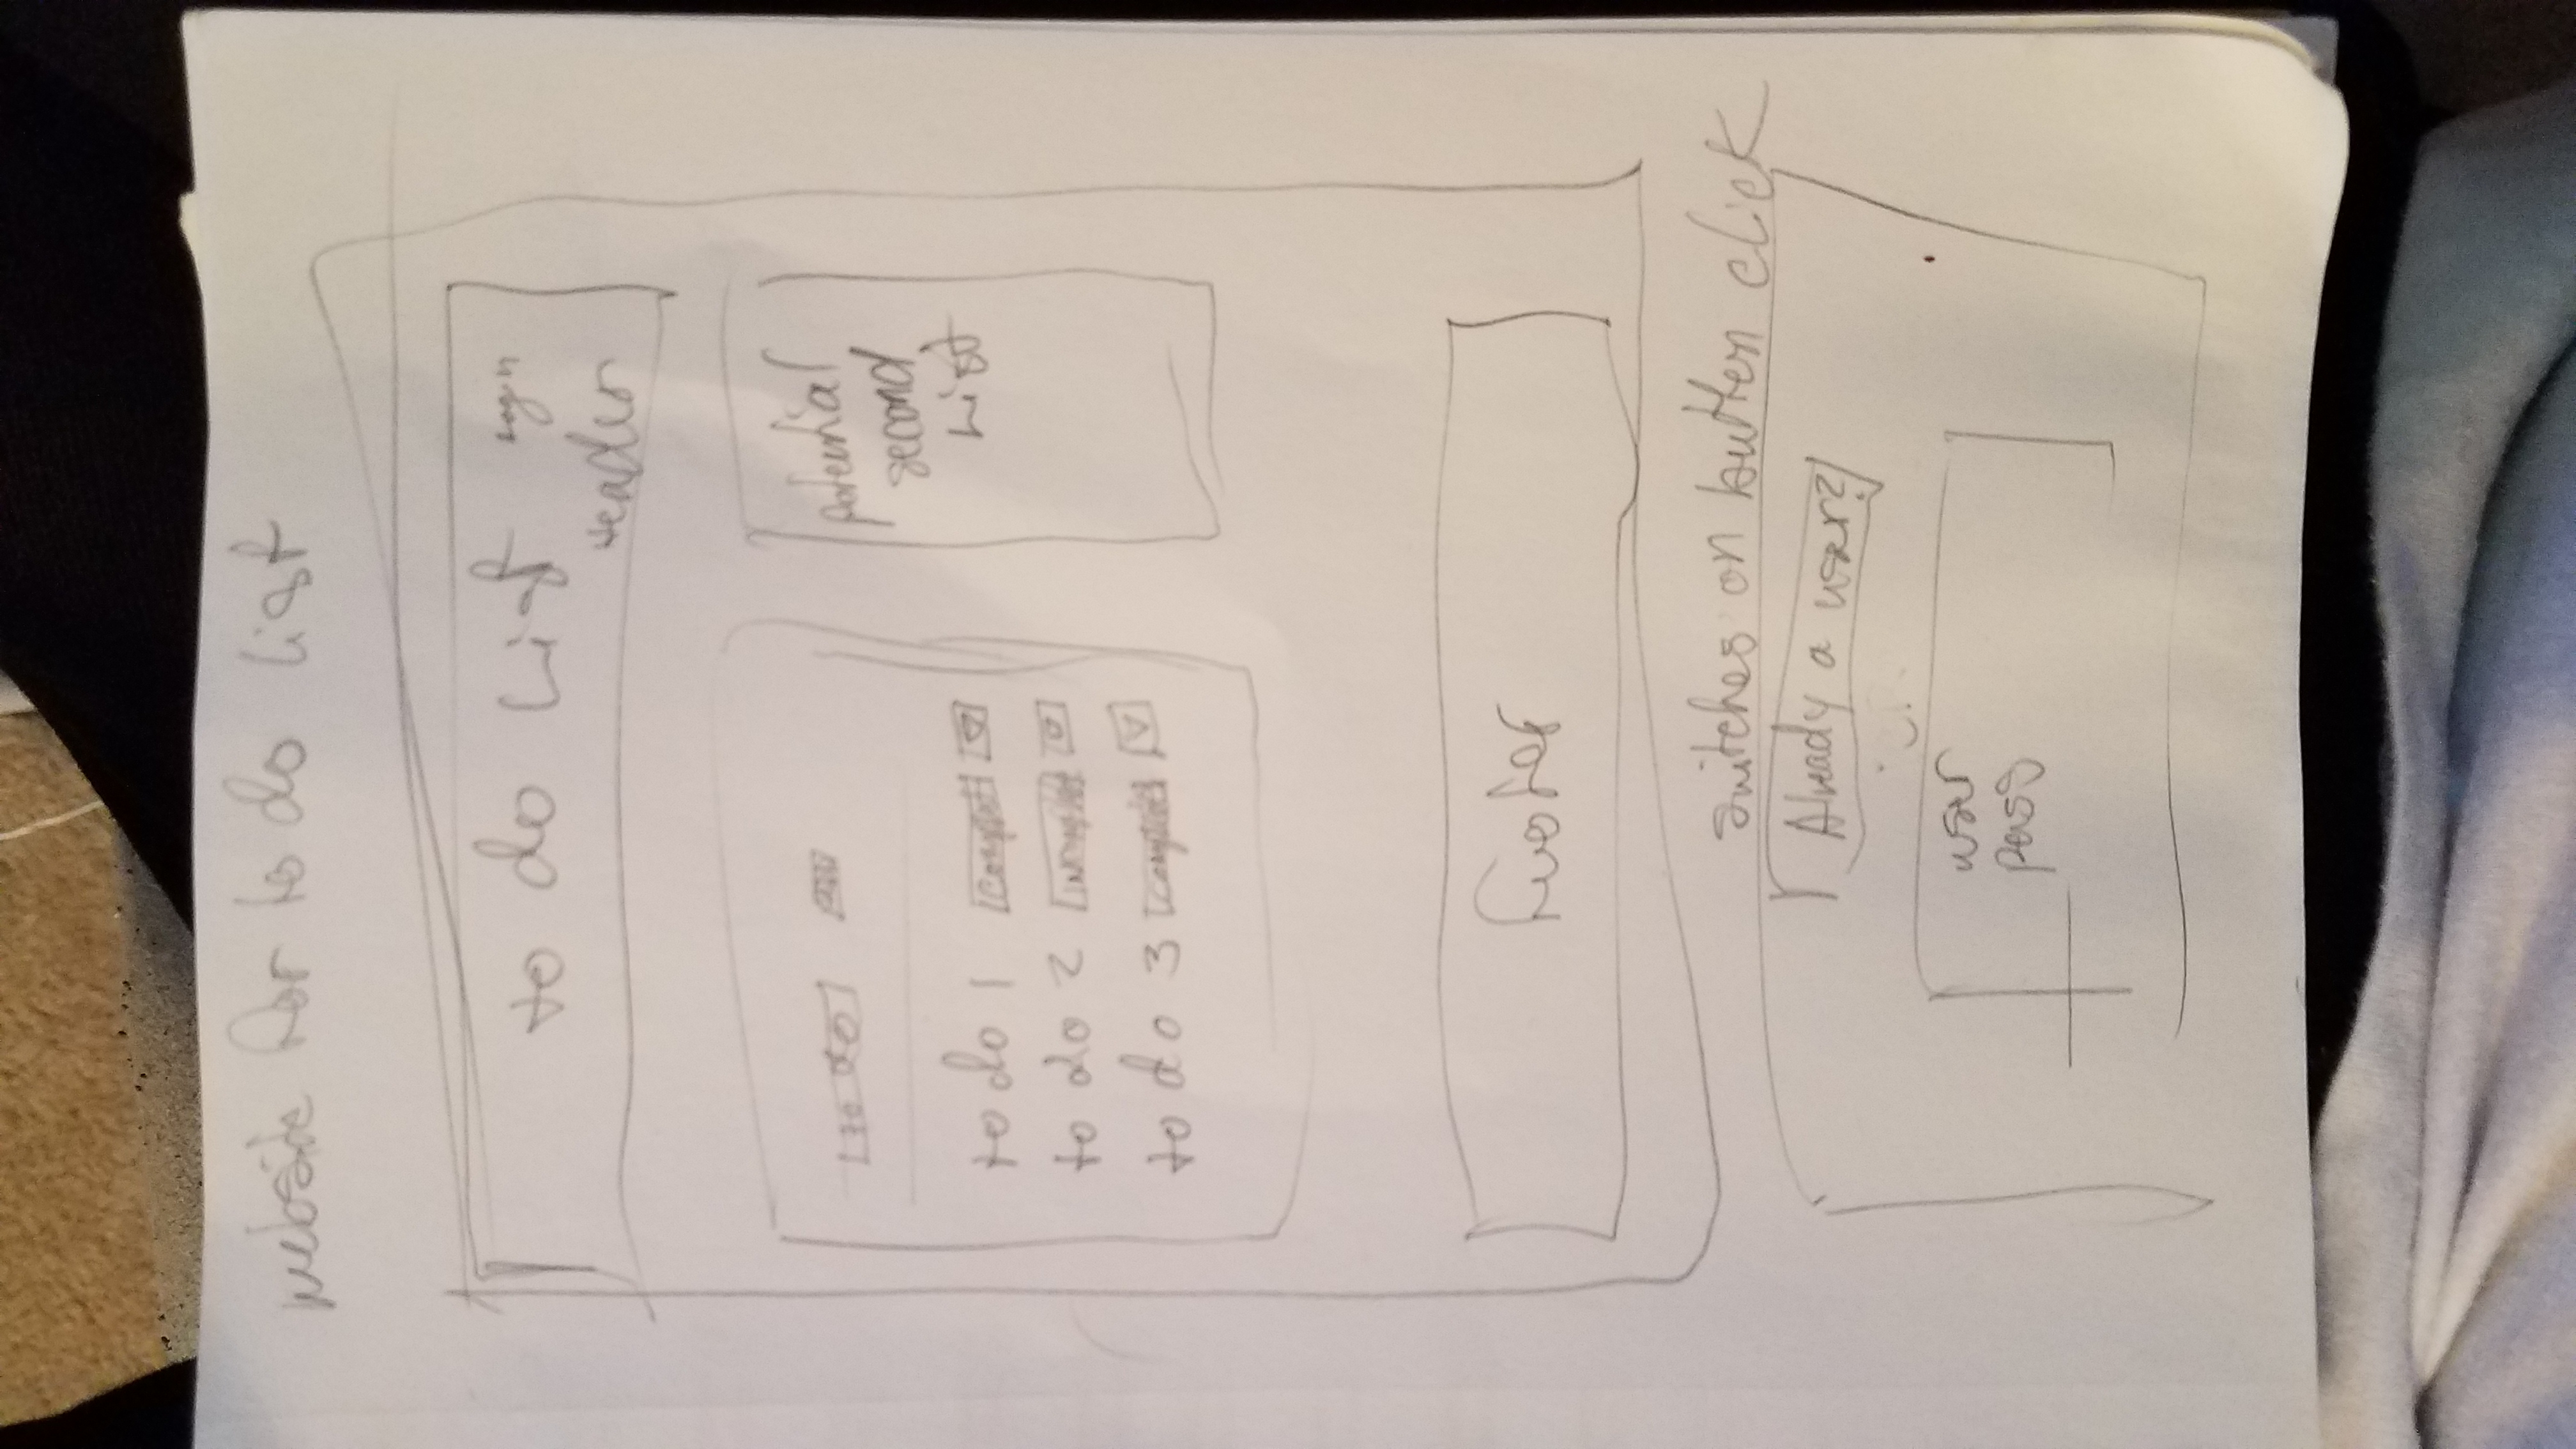 website for to do list
to do List Login
Header
to do Add
to do 1 Complete
to do 2 Incomplete
to do 3 Complete
potential
second
List
Footer
switches on button click
Already a user?
user
pass